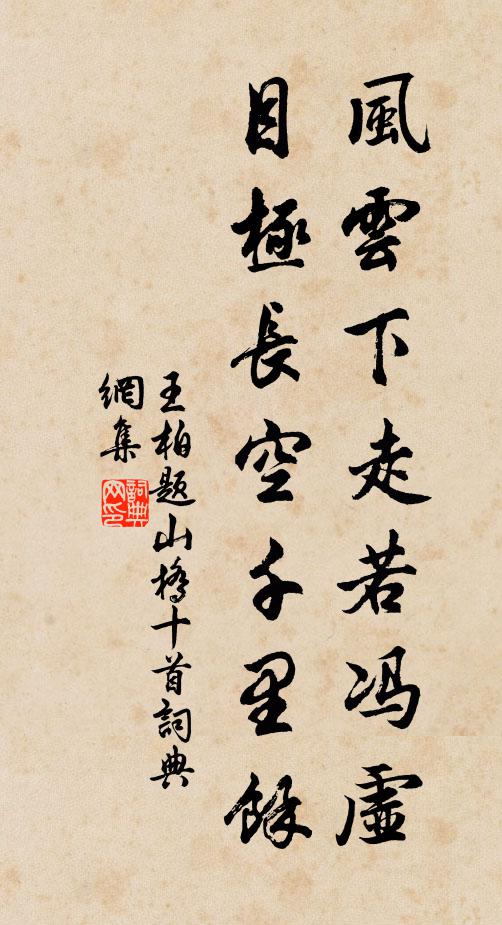 風雲下走若冯虛
目極長空千里餘
王柏题山橋十首詞典
網集
詞典
网印